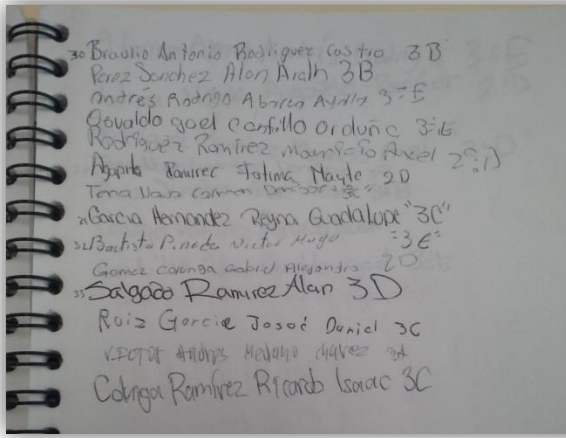 30 Braulio Antonio Rodriguez Castro 3B
Perez Sanchez Alan Aralh 3B
Andrés Rodrigo Abarca 3=E
Osvaldo gael Castillo Orduña 3=E
Rodríguez Ramírez Mauricio Axel 2º D
Agapito Ramirez Fatima Mayte 2D
Tema Nava Carmen
31 Garcia Hernandez Reyna Guadalupe "3C"
32 Bautista Pineda Victor Hugo "3E"
Gomez Gabriel Alejandro 2D
33 Salgado Ramirez Alan 3D
Ruiz Garcia Josué Daniel 3C
VICTOR Andres Medano chavez 3A
Colunga Ramírez Ricardo Isaac 3C